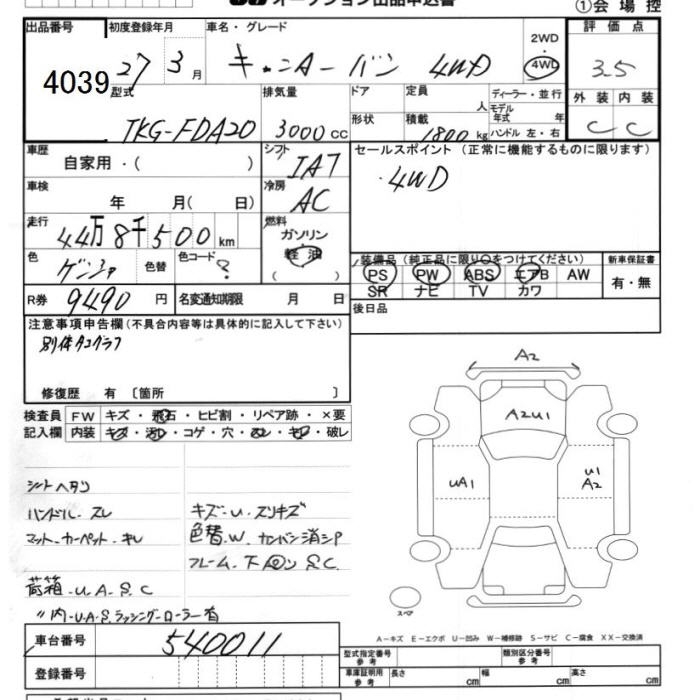 オークション出品申込書 ①会場控
出品番号 4039
初度登録年月 27 3月
車名・グレード キャンター バン 4WD
2WD・4WD
評価点 3.5
型式 TKG-FDA20
排気量 3000 cc
ドア 形状
定員 人
積載 1800 kg
ディーラー・並行
モデル年式 年
ハンドル 左・右
外装 C 内装 C
車歴 自家用・( )
シフト IA7
セールスポイント (正常に機能するものに限ります)
・4WD
車検 年 月( 日)
冷房 AC
走行 44万8千500 km
燃料 ガソリン 軽油 ( )
色 ゲンシャ 色替 色コード ?
装備品(純正品に限り○をつけてください)
PS PW ABS エアB AW
SR ナビ TV カワ
新車保証書 有・無
R券 9490 円
名変通知期限 月 日
後日品
注意事項申告欄(不具合内容等は具体的に記入して下さい)
別体タコグラフ
修復歴 有 〔箇所 〕
検査員記入欄
FW キズ・飛石・ヒビ割・リペア跡・×要
内装 キズ・汚レ・コゲ・穴・スレ・キレ・破レ
シートヘタリ
ハンドル.スレ
マット.カーペット.キレ
荷箱.U.A.S.C
〃内.U.A.S.ラッシングローラー有
キズ.U.スリキズ
色替.W.カンバン消シP
フレーム.下回リ S.C.
A2
A2U1
UA1
U1
A2
スペア
A-キズ E-エクボ U-凹み W-補修跡 S-サビ C-腐食 XX-交換済
車台番号 540011
登録番号
型式指定番号 参考
類別区分番号 参考
車庫証明用 参考 長さ cm 幅 cm 高さ cm